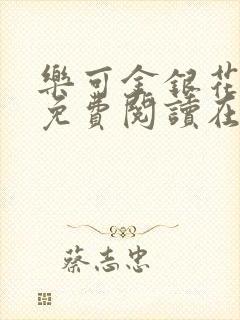 樂可金銀花
免費閱讀在
蔡志忠